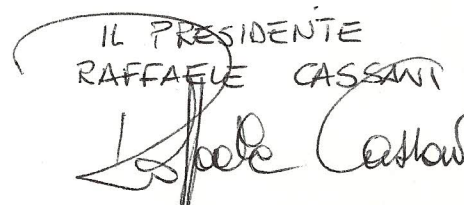 IL PRESIDENTE
RAFFAELE CASSANI
Raffaele Cassani